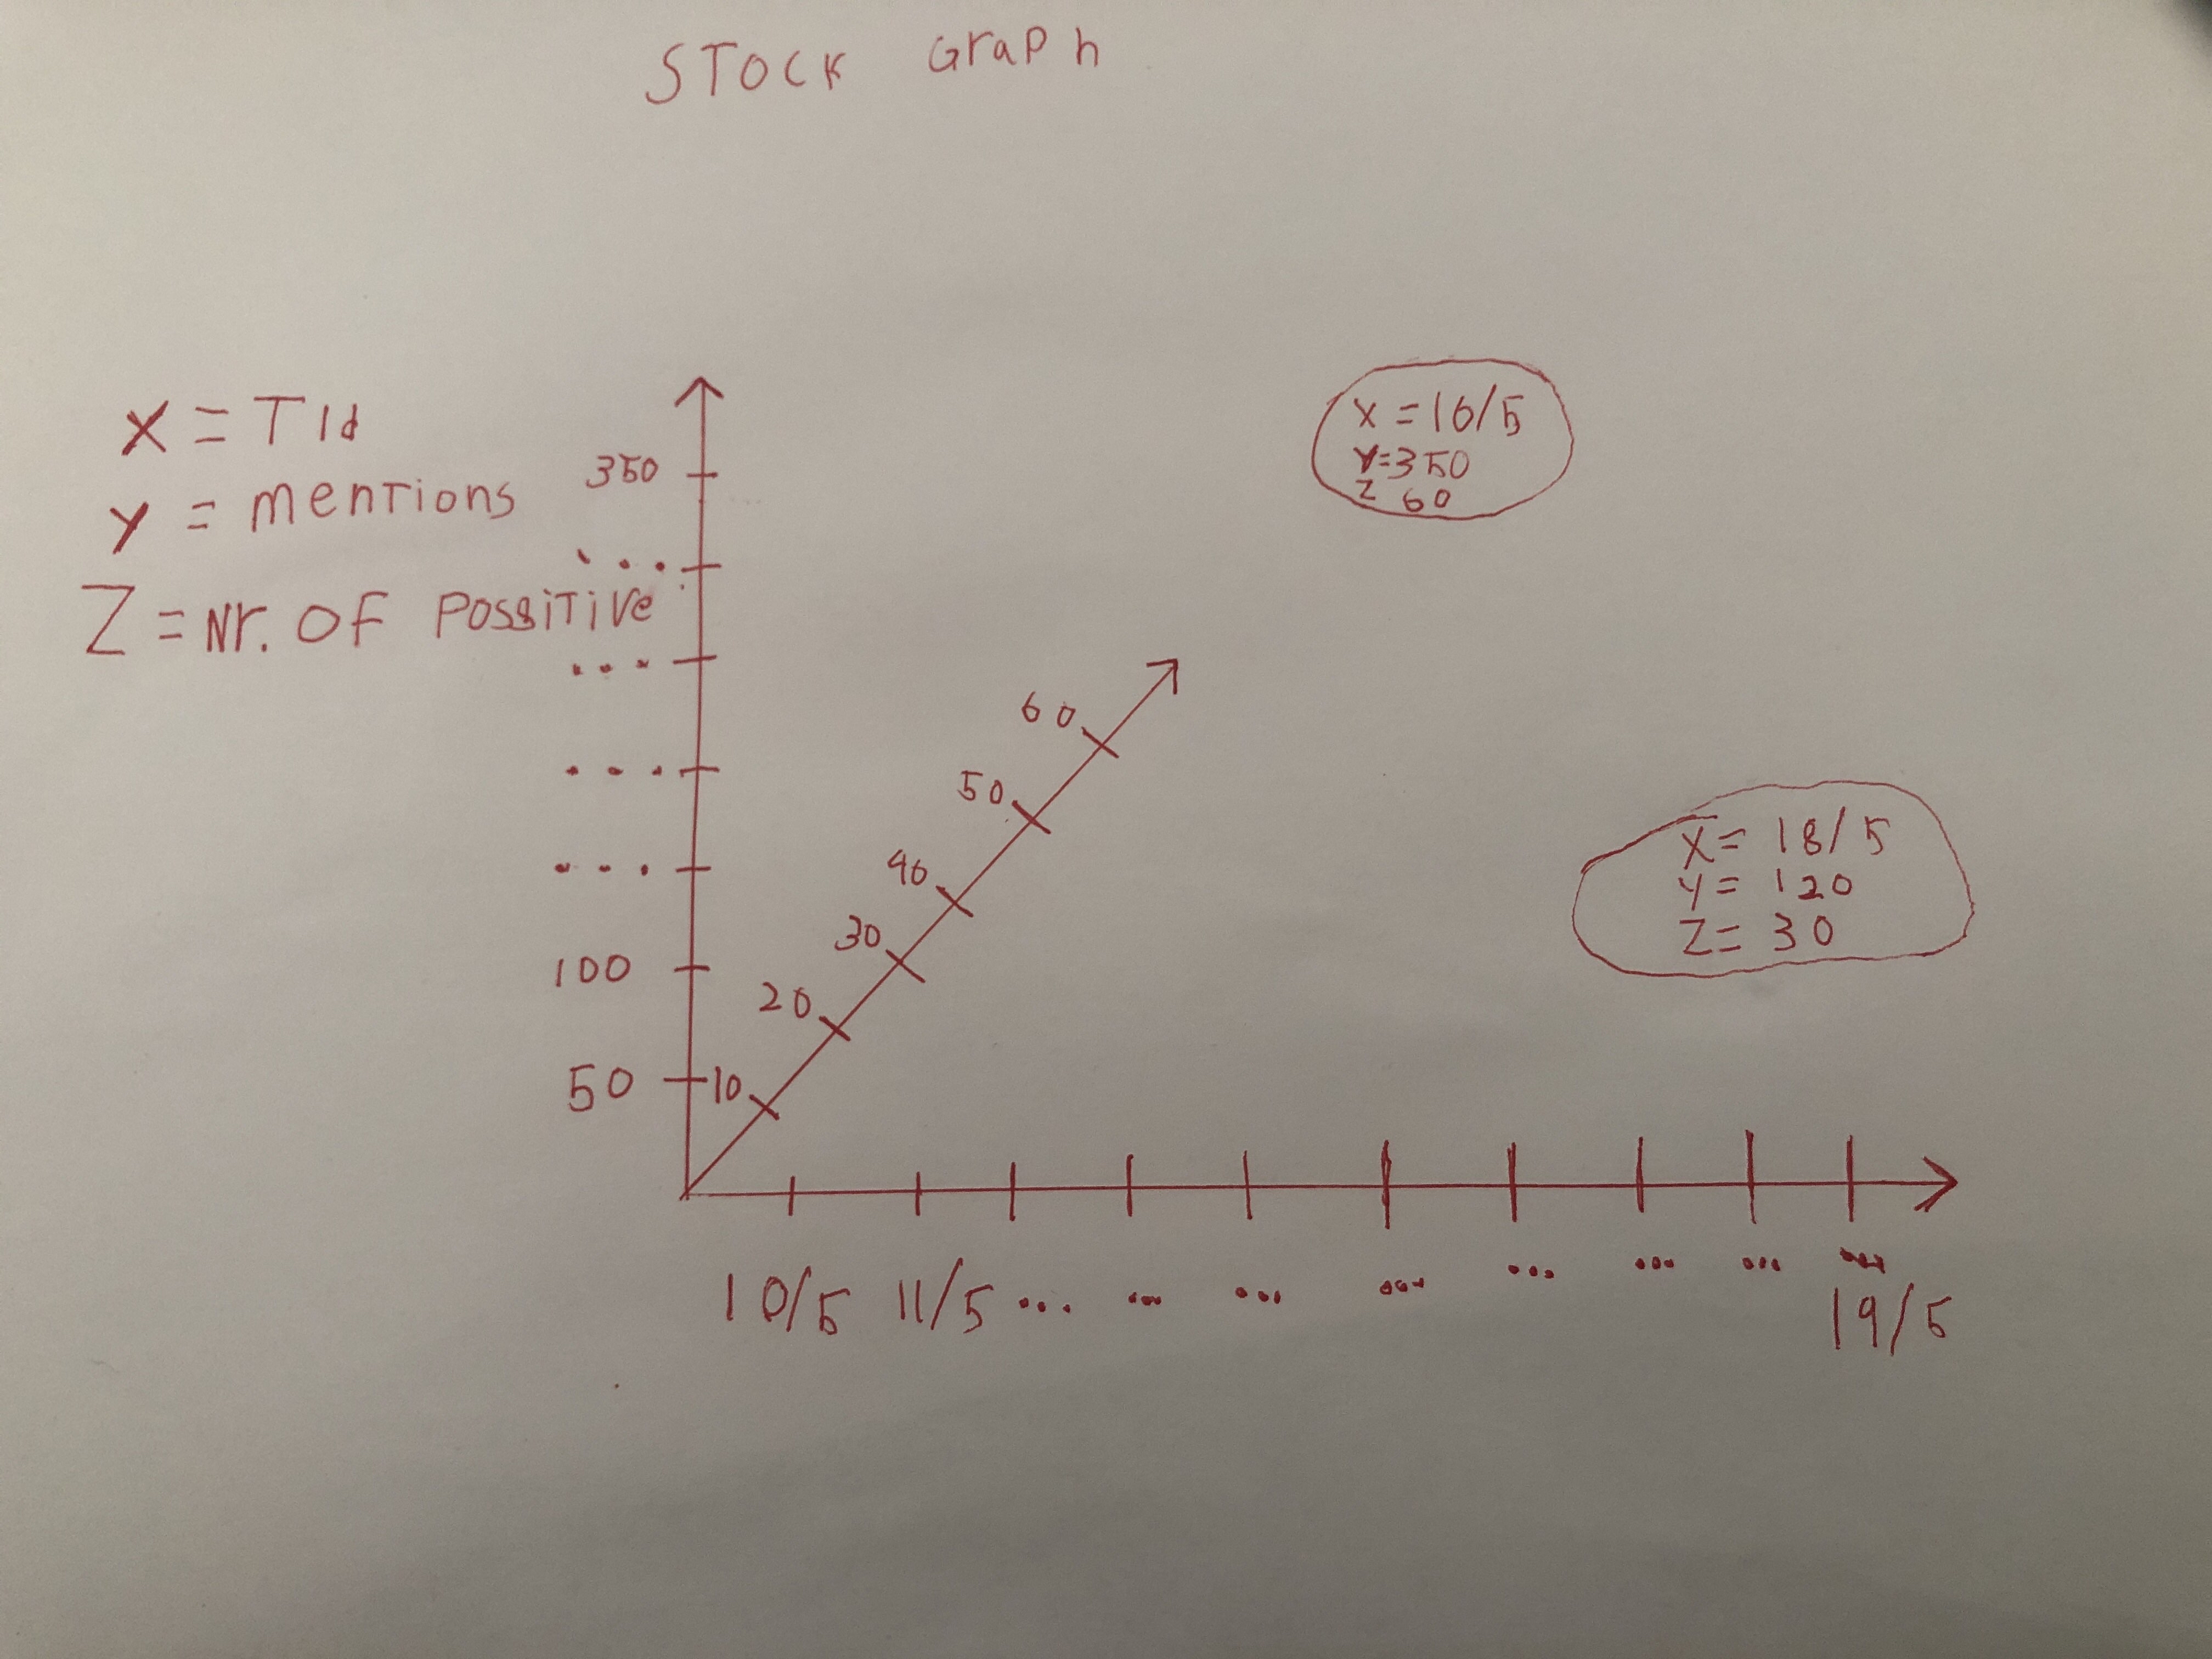 STOCK Graph
X = Tid
y = mentions
Z = Nr. OF Possitive
350
...
...
...
...
100
50
60
50
40
30
20
10
X = 16/5
Y=350
Z 60
X= 18/5
y= 120
Z= 30
10/5 11/5 ... ... ... ... ... ... ... ...
19/5